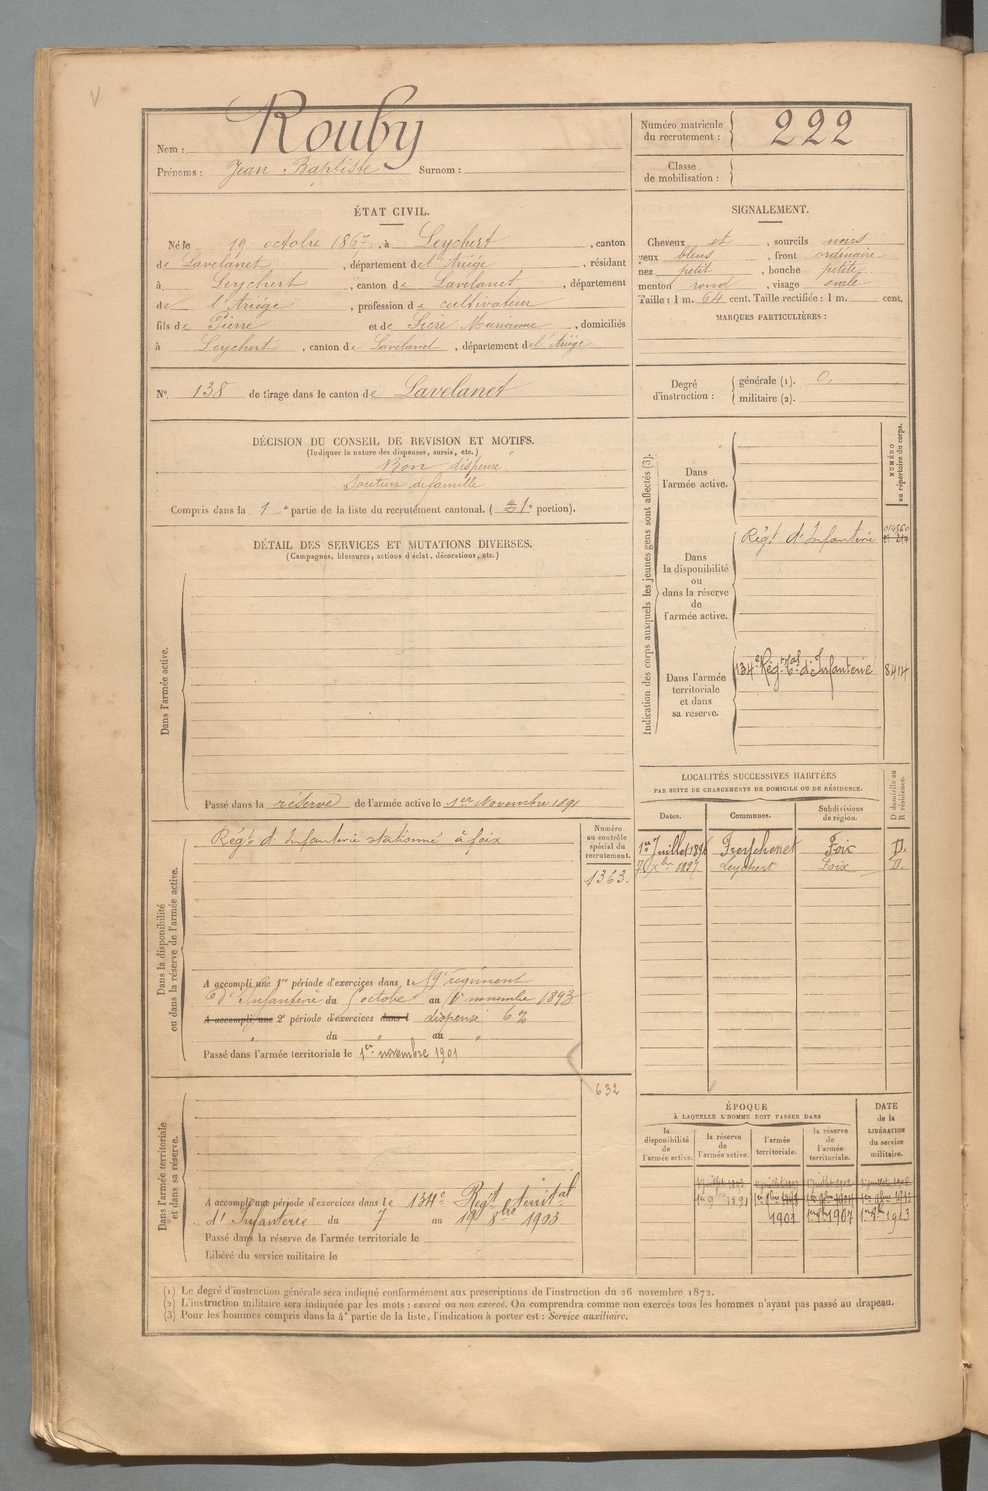 Nom : Rouby
Prénoms : Jean Baptiste Surnom :
Numéro matricule du recrutement : 222
Classe de mobilisation :
ÉTAT CIVIL.
Né le 19 octobre 1867, à Leychert, canton
de Lavelanet, département de l'Ariège, résidant
à Leychert, canton de Lavelanet, département
de l'Ariège, profession de cultivateur
fils de Pierre et de Sicre Marianne, domiciliés
à Leychert, canton de Lavelanet, département de l'Ariège
SIGNALEMENT.
Cheveux et, sourcils noirs
yeux bleus, front ordinaire
nez petit, bouche petite
menton rond, visage ovale
Taille : 1 m. 64 cent. Taille rectifiée : 1 m. cent.
MARQUES PARTICULIÈRES :
N° 138 de tirage dans le canton de Lavelanet
Degré d'instruction : générale (1). 0,
militaire (2).
DÉCISION DU CONSEIL DE REVISION ET MOTIFS.
(Indiquer la nature des dispenses, sursis, etc.)
Bon dispensé
Soutien de famille
Compris dans la 1e partie de la liste du recrutement cantonal. (2 1e portion).
DÉTAIL DES SERVICES ET MUTATIONS DIVERSES.
(Campagnes, blessures, actions d'éclat, décorations, etc.)
Dans l'armée active.
Passé dans la réserve de l'armée active le 1er Novembre 1891
Dans la disponibilité ou dans la réserve de l'armée active.
Régt d'Infanterie stationné à foix
Numéro au contrôle spécial du recrutement.
1363.
A accompli une 1re période d'exercices dans le régiment
d'Infanterie du octobre au novembre 1893
A accompli une 2e période d'exercices dans l dispensé
du " au "
Passé dans l'armée territoriale le 1er novembre 1901
Dans l'armée territoriale et dans sa réserve.
632
A accompli une période d'exercices dans le 134e Régt territal
d'Infanterie du 7 au 19 8bre 1903
Passé dans la réserve de l'armée territoriale le
Libéré du service militaire le
Indication des corps auxquels les jeunes gens sont affectés (3).
NUMÉRO au répertoire du corps.
Dans l'armée active.
Dans la disponibilité ou dans la réserve de l'armée active.
Régt d'Infanterie 014560
Dans l'armée territoriale et dans sa réserve.
134e Rég. Tal d'Infanterie 8414
LOCALITÉS SUCCESSIVES HABITÉES
PAR SUITE DE CHANGEMENTS DE DOMICILE OU DE RÉSIDENCE.
Dates. Communes. Subdivisions de région. D domicile ou R résidence.
1er Juillet 1896 Freychenet Foix D.
7 Xbre 1897 Leychert Foix D.
ÉPOQUE
À LAQUELLE L'HOMME DOIT PASSER DANS
la disponibilité de l'armée active. la réserve de l'armée active. l'armée territoriale. la réserve de l'armée territoriale.
DATE de la LIBÉRATION du service militaire.
1er 9bre 1891
1901 1907 1913
(1) Le degré d'instruction générale sera indiqué conformément aux prescriptions de l'instruction du 26 novembre 1872.
(2) L'instruction militaire sera indiquée par les mots : exercé ou non exercé. On comprendra comme non exercés tous les hommes n'ayant pas passé au drapeau.
(3) Pour les hommes compris dans la 4e partie de la liste, l'indication à porter est : Service auxiliaire.